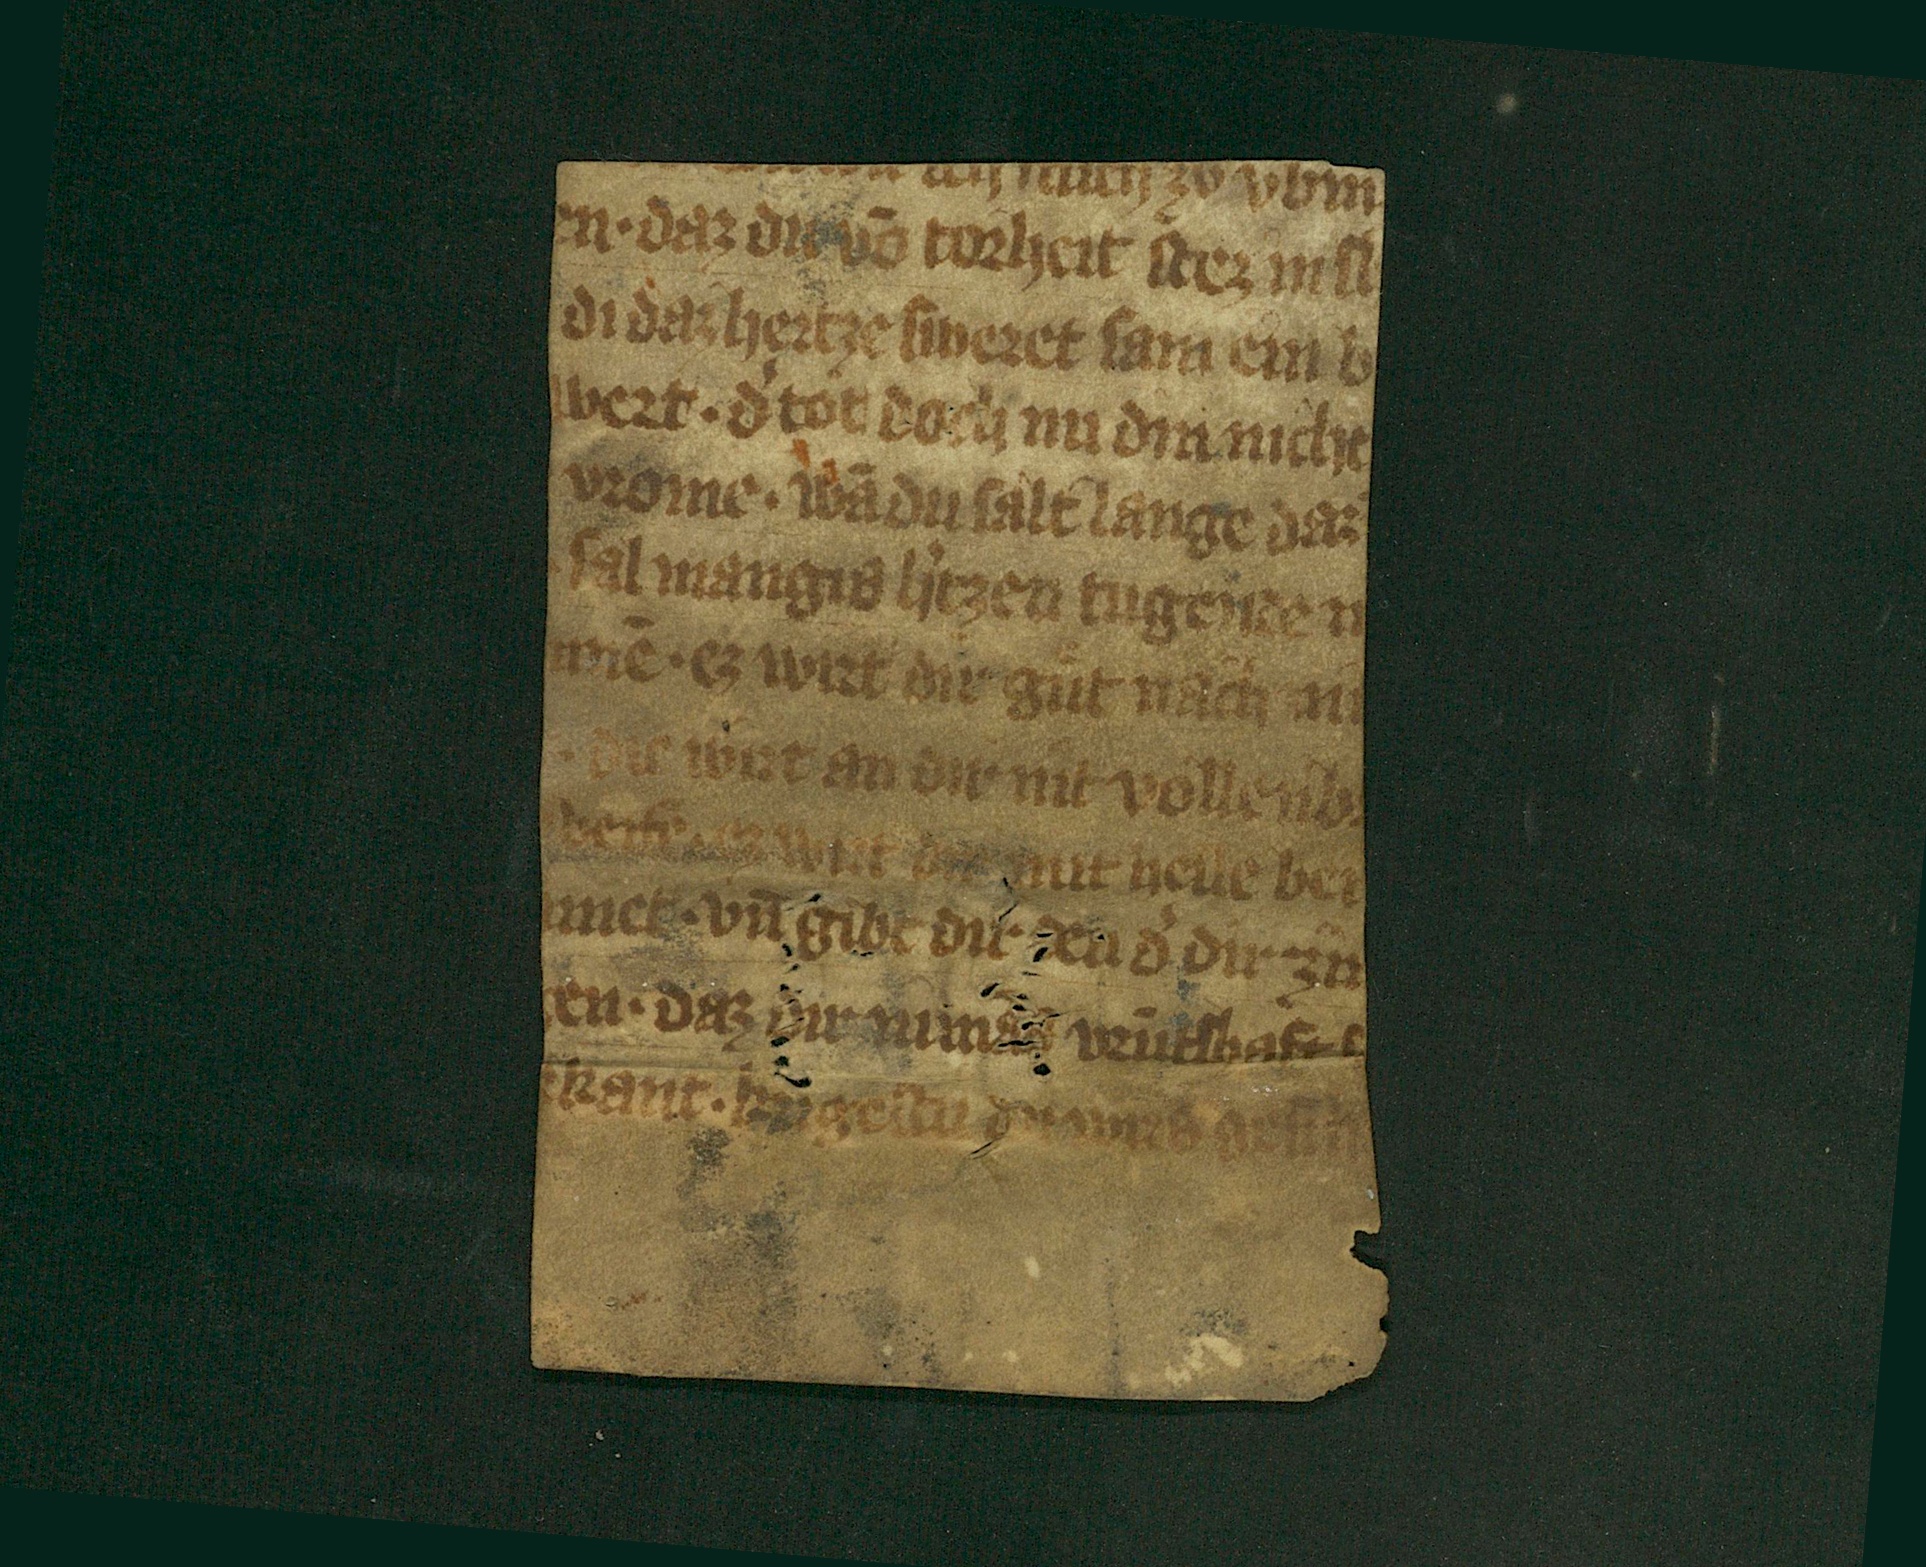 ich mich zv vbin
en · daz du vō torheit stez in sl
di daz hertze sweret sam ein b
wert · d' tot doch mi din nicht
vrome · wā du salt lange daz
sal mangis h'tzen tugende n
mē · ez wirt dir gůt nach m
· die wirt an dir nit vollenb
ez wirt dir mit heile ber
met · vn̄ gibt dir den d' dir zů
en · daz dir nimās vrūtshaft
kant · hugestu du wirs